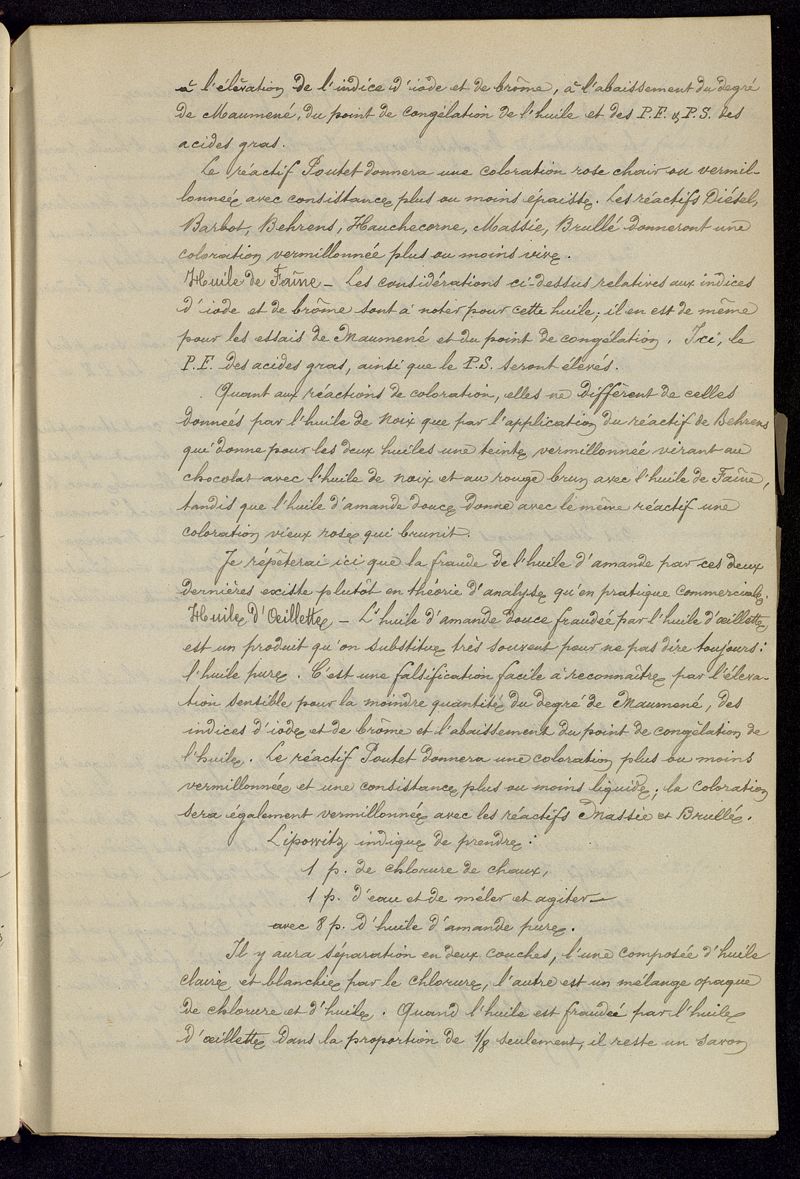 à l'élèvation de l'indice d'iode et de brôme, à l'abaissement du degré
de Maumené, du point de congélation de l'huile et des P.F. & P.S. des
acides gras.
Le réactif Poutet donnera une coloration rose chair ou vermil-
lonnée avec consistance plus ou moins épaisse. Les réactifs Diésel,
Barbot, Behrens, Hauchecorne, Massie, Brullé donneront une
coloration vermillonnée plus ou moins vive.
Huile de Faîne – Les considérations ci-dessus relatives aux indices
d'iode et de brôme sont à noter pour cette huile; il en est de même
pour les essais de Maumené et du point de congélation. Ici, le
P.F. des acides gras, ainsi que le P.S. seront élevés.
Quant aux réactions de coloration, elles ne diffèrent de celles
données par l'huile de noix que par l'application du réactif de Behrens
qui donne pour les deux huiles une teinte vermillonnée virant au
chocolat avec l'huile de noix et au rouge brun avec l'huile de Faîne,
tandis que l'huile d'amande douce donne avec le même réactif une
coloration vieux rose qui brunit.
Je répèterai ici que la fraude de l'huile d'amande par ces deux
dernières existe plutôt en théorie d'analyse qu'en pratique commerciale.
Huile d'Œillette – L'huile d'amande douce fraudée par l'huile d'œillette
est un produit qu'on substitue très souvent pour ne pas dire toujours:
l'huile pure. C'est une falsification facile à reconnaître par l'éleva-
tion sensible pour la moindre quantité du degré de Maumené, des
indices d'iode et de brôme et l'abaissement du point de congélation de
l'huile. Le réactif Poutet donnera une coloration plus ou moins
vermillonnée et une consistance plus ou moins liquide; la coloration
sera également vermillonnée avec les réactifs Massie et Brullé.
Lipowitz indique de prendre:
1 p. de chlorure de chaux,
1 p. d'eau et de mêler et agiter
avec 8 p. d'huile d'amande pure.
Il y aura séparation en deux couches, l'une composée d'huile
claire et blanchie par le chlorure, l'autre est un mélange opaque
de chlorure et d'huile. Quand l'huile est fraudée par l'huile
d'œillette dans la proportion de 1/8 seulement, il reste un savon